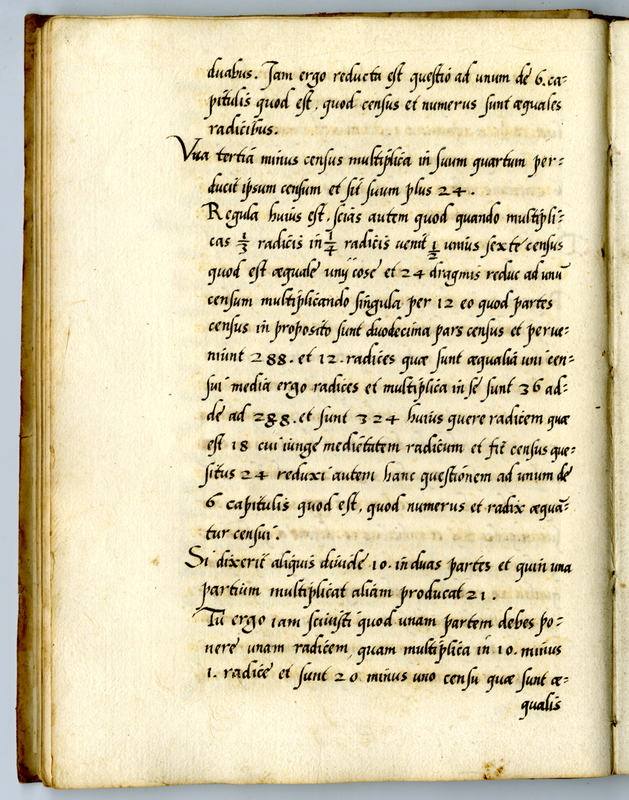 duabus. Jam ergo reducta est questio ad unum de 6. ca-
pitulis quod est, quod census et numerus sunt æquales
radicibus.
Vna tertiã minus census multiplica in suum quartum per-
ducit ipsum censum et sit suum plus 24.
Regula huius est, scias autem quod quando multipli-
cas 1/3 radicis in 1/4 radicis venit 1/2 unius sexte census
quod est æquale unÿ cose et 24 dragmis reduc ad unũ
censum multiplicando singula per 12 eo quod partes
census in proposito sunt duodecima pars census et perue-
niunt 288. et 12. radices quæ sunt æqualia uni cen-
sui media ergo radices et multiplica in se sunt 36 ad-
de ad 288. et sunt 324 huius quere radicem quæ
est 18 cui iunge medietatem radicum et fit census que-
situs 24 reduxi autem hanc questionem ad unum de
6 capitulis quod est, quod numerus et radix æquã-
tur censui.
Si dixerit aliquis diuide 10. in duas partes et quin una
partium multiplicat aliam producat 21.
Tu ergo iam sciuisti quod unam partem debes po-
nere unam radicem, quam multiplica in 10. minus
1. radice et sunt 20 minus uno censu quæ sunt æ-
qualis